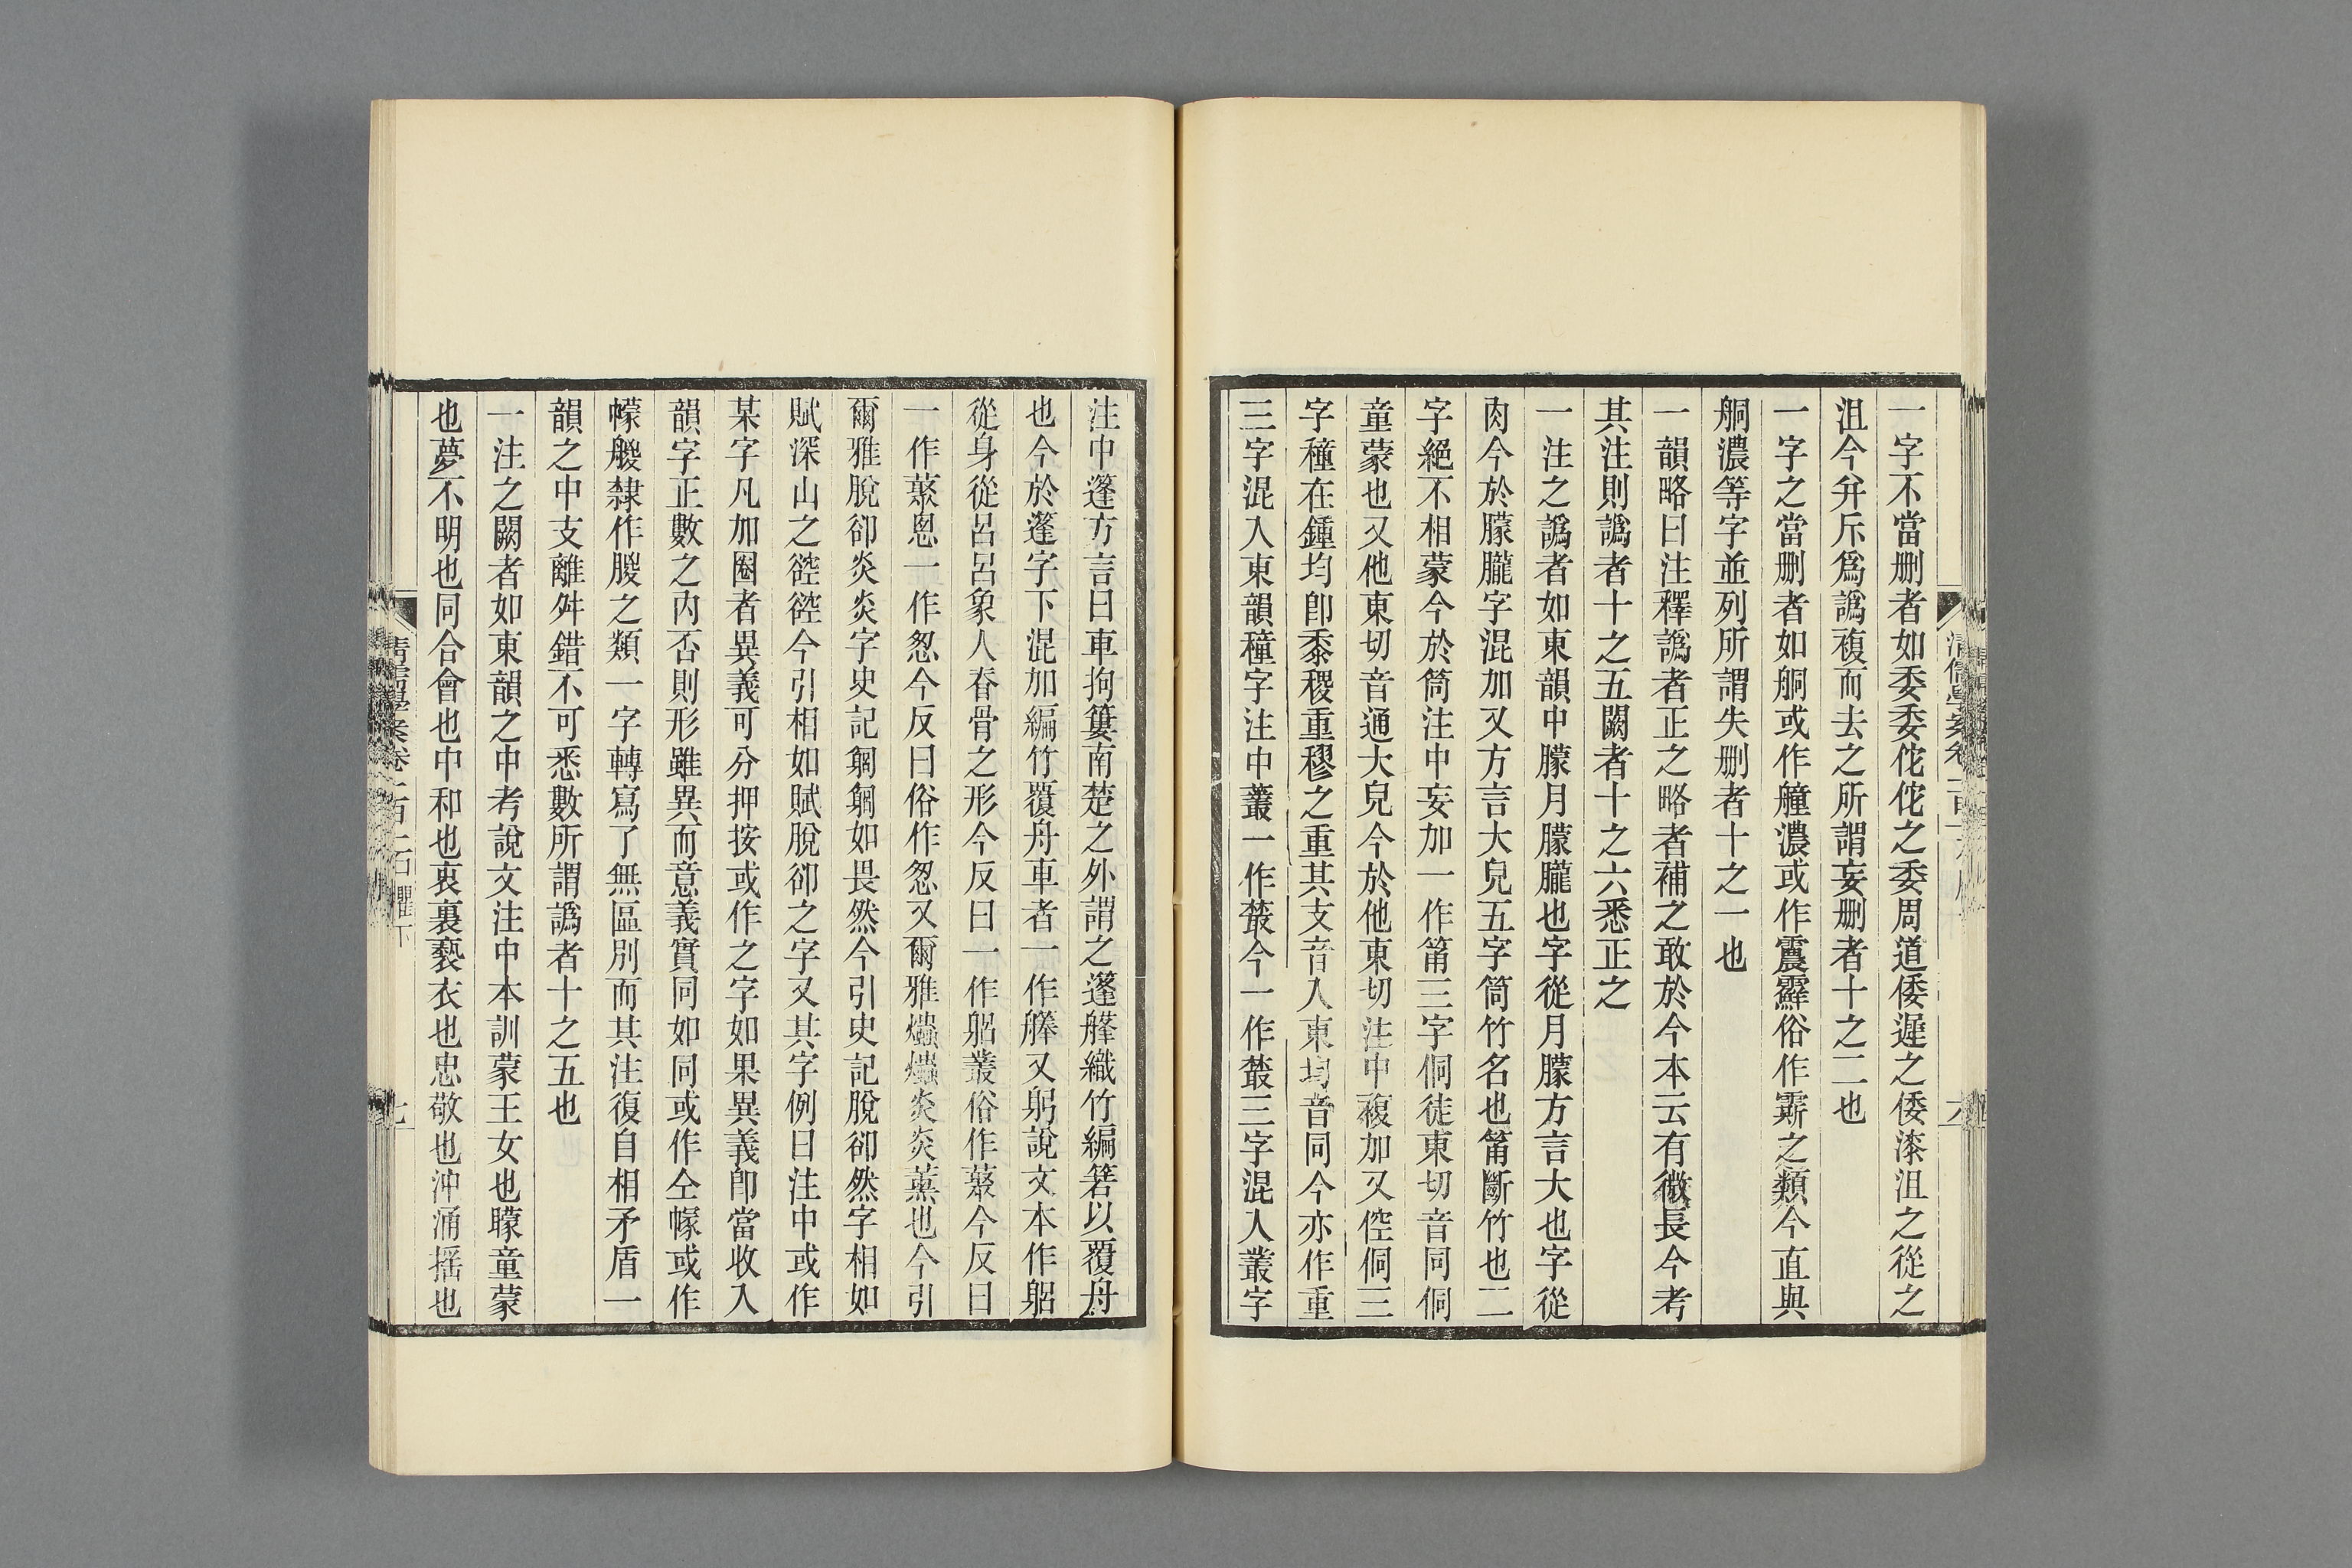 一字不當删者如委委佗佗之委周道倭遲之倭漆沮之從之
沮今弁斥爲譌複而去之所謂妄删者十之二也
一字之當删者如舸或作艟濃或作震霹俗作霹之類今直與
舸濃等字並列所謂失删者十之一也
一韻略曰注釋譌者正之略者補之敢於今本云有微長今考
其注則譌者十之五闕者十之六悉正之
一注之譌者如東韻中朦月朦朧也字從月朦方言大也字從
肉今於朦朧字混加又方言大皃五字筒竹名也筩斷竹也二
字絕不相蒙今於筒注中妄加一作筩三字侗徒東切音同侗
童蒙也又他東切音通大皃今於他東切注中複加又倥侗三
字穜在鍾均卽黍稷重穋之重其支音入東均音同今亦作重
三字混入東韻穜字注中叢一作藂今一作藂三字混入叢字
注中篷方言曰車拘簍南楚之外謂之篷艂織竹編箬以覆舟
也今於篷字下混加編竹覆舟車者一作艂又躬說文本作躳
從身從呂呂象人脊骨之形今反曰一作躳叢俗作藂今反曰
一作藂悤一作怱今反曰俗作怱又爾雅爞爞炎炎薰也今引
爾雅脫卻炎炎字史記匔匔如畏然今引史記脫卻然字相如
賦深山之谾谾今引相如賦脫卻之字又其字例曰注中或作
某字凡加圈者異義可分押按或作之字如果異義卽當收入
韻字正數之內否則形雖異而意義實同如同或作仝幪或作
幏艐隸作朡之類一字轉寫了無區別而其注復自相矛盾一
韻之中支離舛錯不可悉數所謂譌者十之五也
一注之闕者如東韻之中考說文注中本訓蒙王女也矇童蒙
也夢不明也同合會也中和也衷裏褻衣也忠敬也沖涌搖也